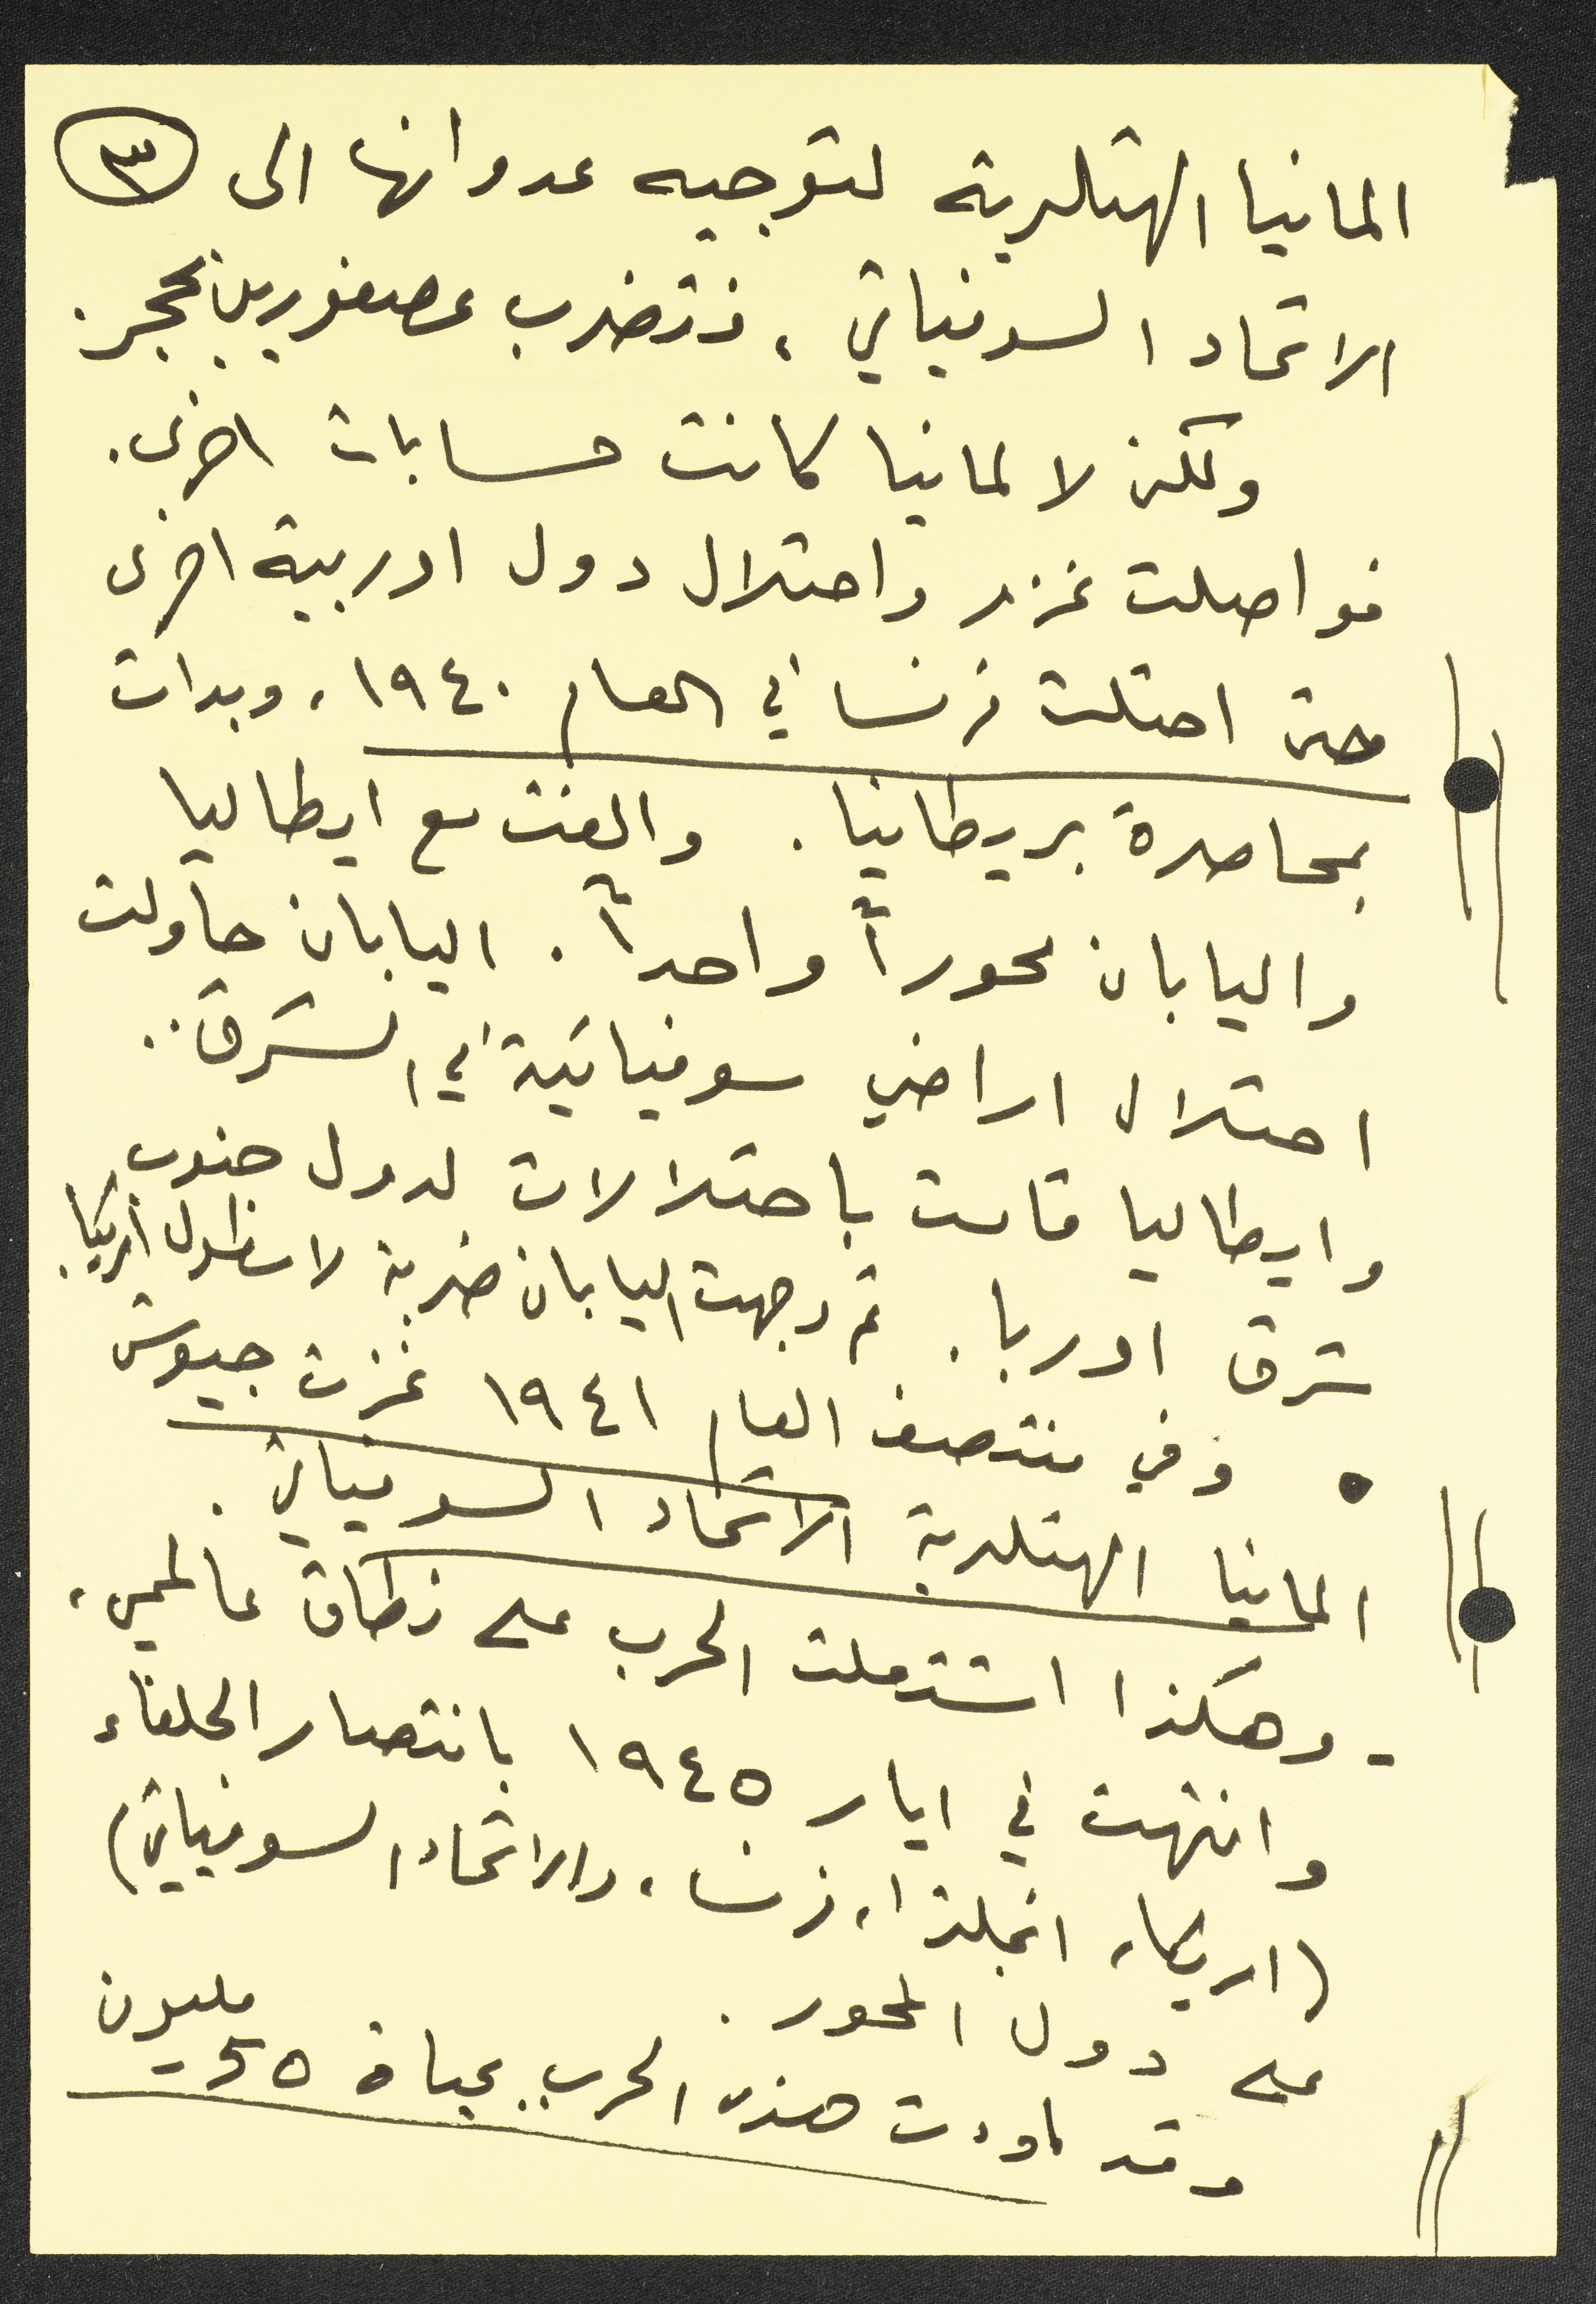 المانيا الهتلرية لتوجيه عدوانها الى ٣
الاتحاد السوفياتي، فتضرب عصفورين بحجر.
ولكن لالمانيا كانت حسابات اخرى.
فواصلت غزو واحتلال دول اوربية اخرى
حتى احتلت فرنسا في العام ١٩٤٠، وبدات
بمحاصرة بريطانيا. والفت مع ايطاليا
واليابان محوراً واحداً. اليابان حاولت
احتلال اراضي سوفياتية في الشرق..
وايطاليا قامت باحتلالات لدول جنوب
شرق اوربا. ثم وجهت اليابان ضربة لاسطول امريكا.
• وفي منتصف العام ١٩٤١ غزت جيوش
المانيا الهتلرية الاتحاد السوفياتي.
- وهكذا اشتعلت الحرب على نطاق عالمي،
وانتهت في ايار ١٩٤٥ بانتصار الحلفاء
(امريكا، انجلترا، فرنسا، والاتحاد السوفياتي)
على دول المحور.
وقد اودت هذه الحرب بحياة ٥٥ مليون